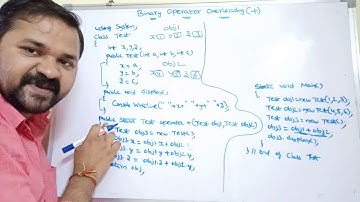 Binary Operator Overloading (+)
using System;
class Test
{
int x,y,z;
public Test(int a, int b, int c)
{
x = a;
y = b;
z = c;
}
public void display()
{
Console.WriteLine(" "+x+" "+y+" "+z)
public static Test operator +(Test obj1, Test obj2)
Test obj3 = new Test();
obj3.x = obj1.x + obj2.
obj3.y = obj1.y + obj2.y;
obj3.z = obj1.z + obj2.
return obj3
obj1
x 1 y 2 z 3
obj2
Static void Main()
{
Test obj1 = new Test(1,2,3);
Test obj2 = new Test(
Test obj3 = new Test();
obj3 = obj1 + obj2;
obj3.display();
}
} // End of Class Test